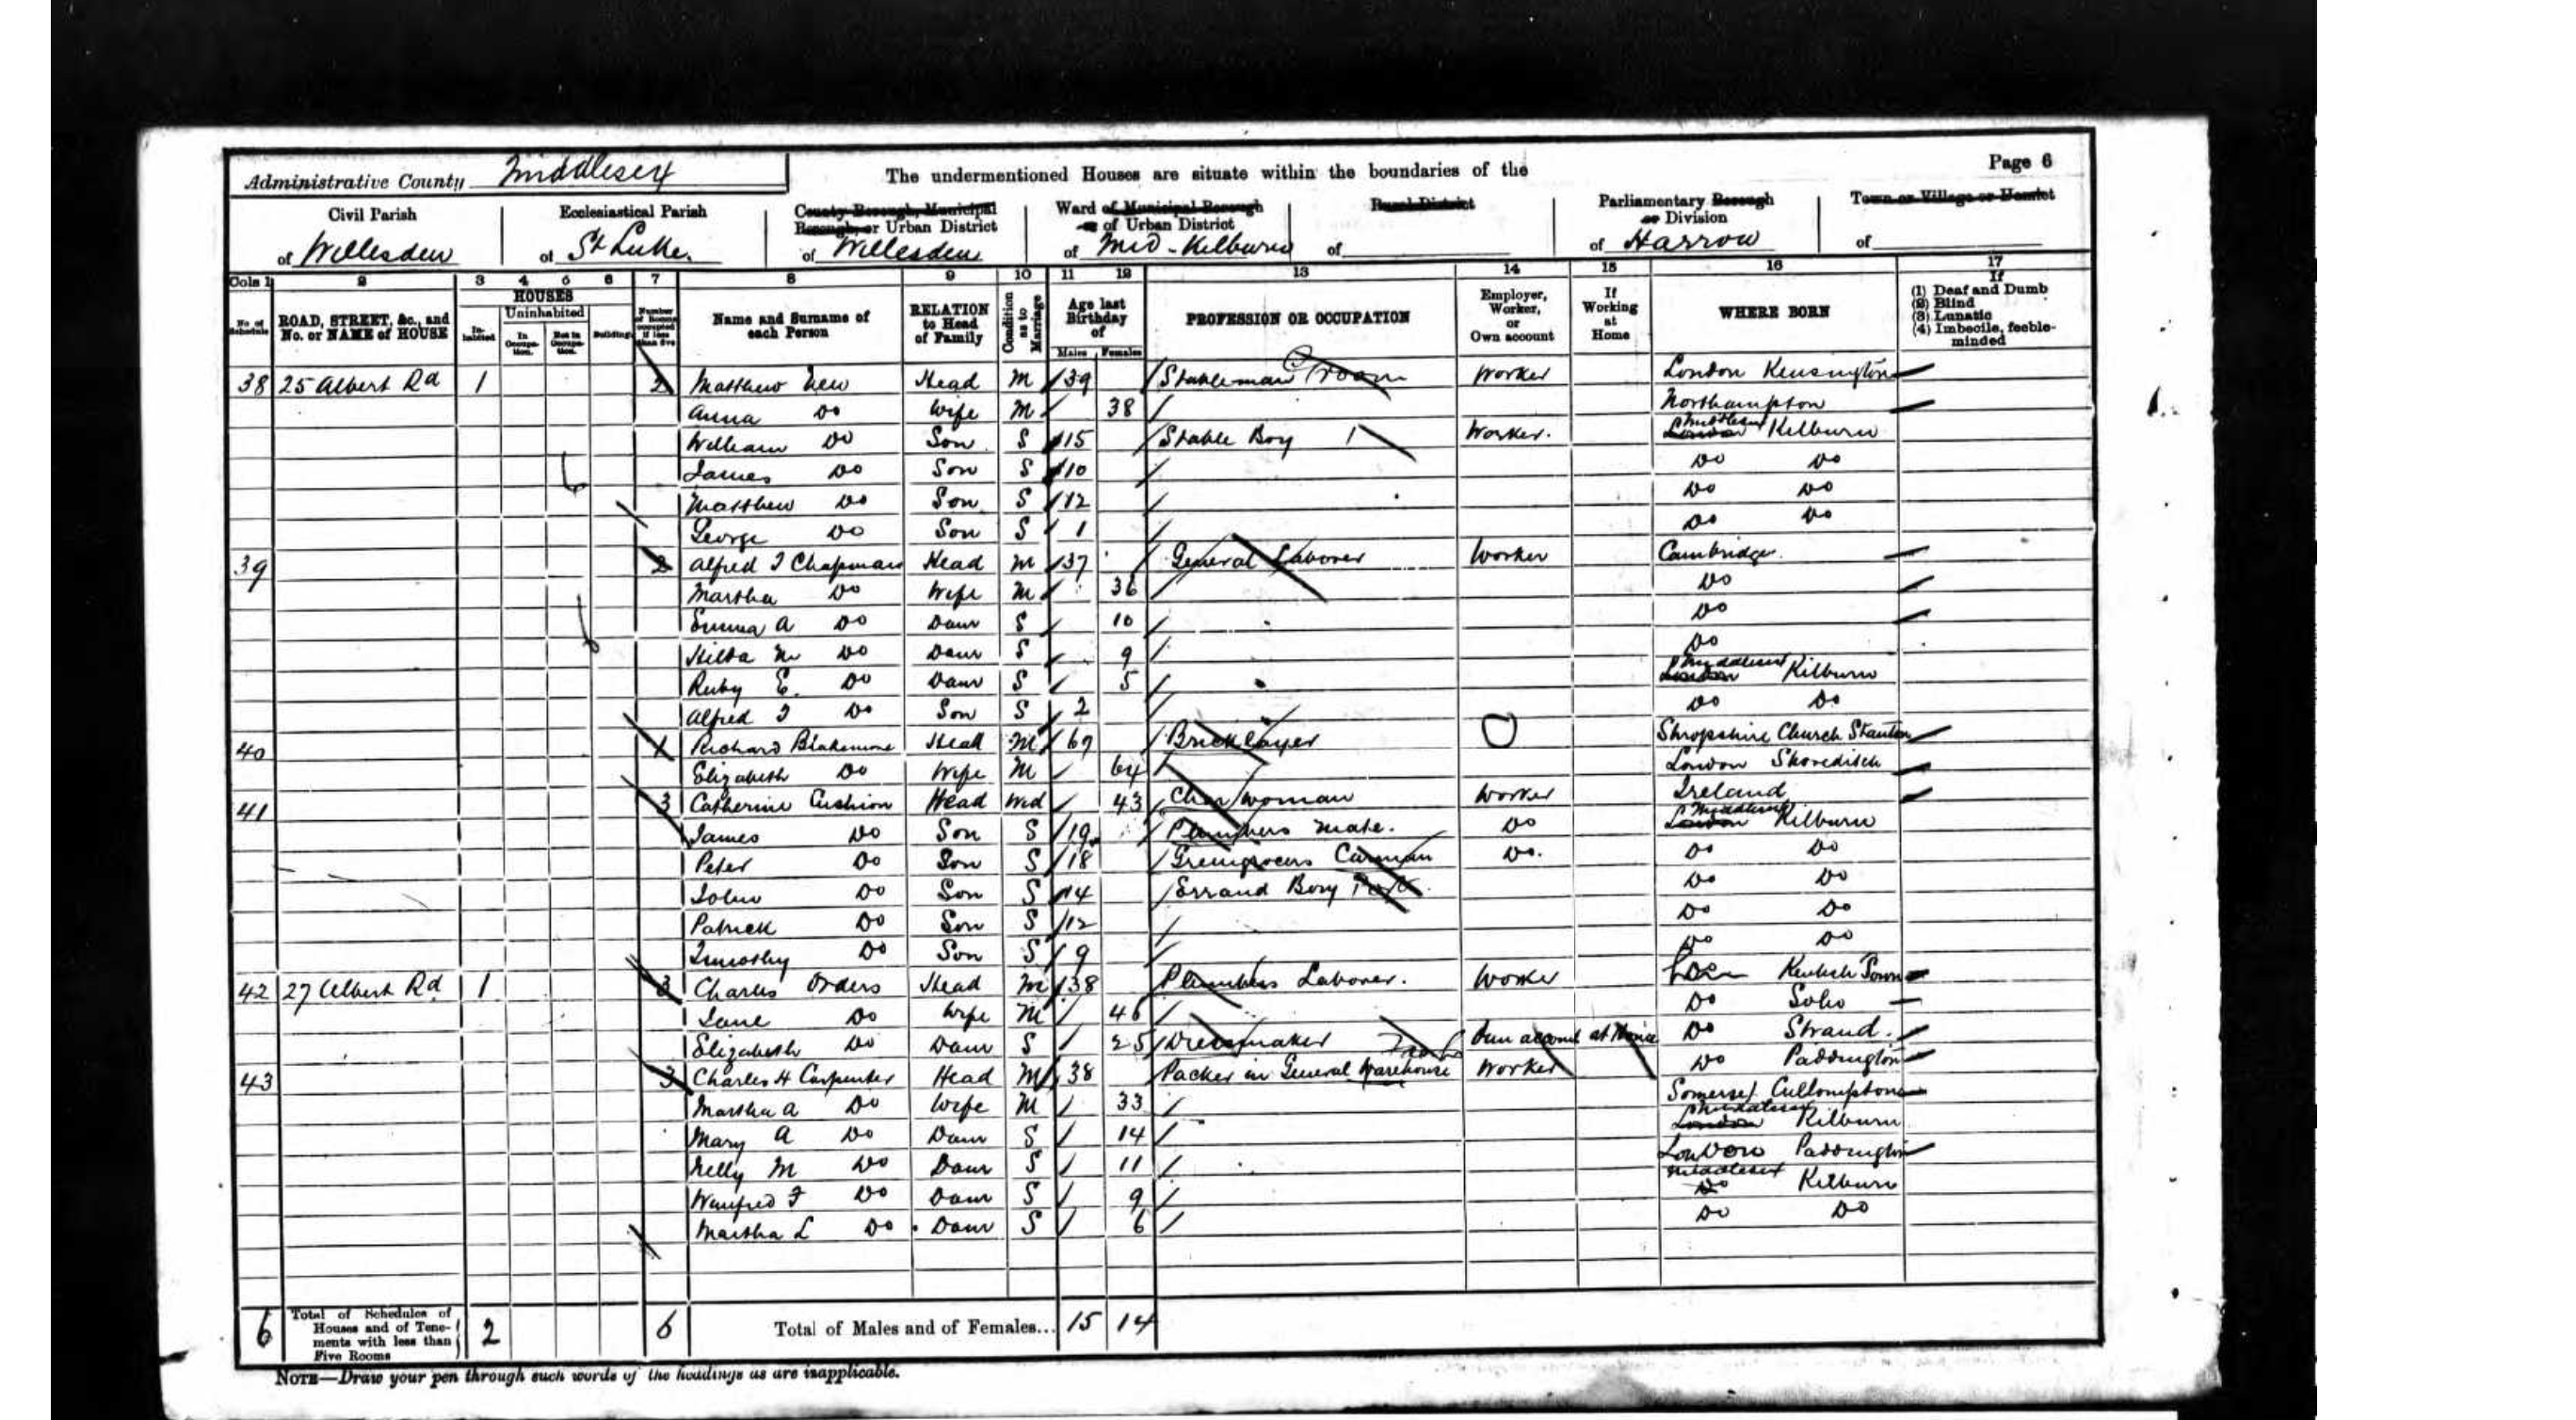 Page 6
Administrative County Middlesex
The undermentioned Houses are situate within the boundaries of the
Civil Parish of Willesden
Ecclesiastical Parish of St Luke.
County Borough, Municipal Borough, or Urban District of Willesden
Ward of Municipal Borough or of Urban District of Mid-Kilburn
Rural District of
Parliamentary Borough or Division of Harrow
Town or Village or Hamlet of
Cols 1 2 3 4 5 6 7 8 9 10 11 12 13 14 15 16 17
No. of Schedule
ROAD, STREET, &c., and No. or NAME of HOUSE
HOUSES
Inhabited
Uninhabited
In Occupation.
Not in Occupation.
Building
Number of Rooms occupied if less than five
Name and Surname of each Person
RELATION to Head of Family
Condition as to Marriage
Age last Birthday of
Males Females
PROFESSION OR OCCUPATION
Employer, Worker, or Own account
If Working at Home
WHERE BORN
If
(1) Deaf and Dumb
(2) Blind
(3) Lunatic
(4) Imbecile, feeble-minded
38 25 Albert Rd 1 2 Matthew New Head M 39 Stableman Groom Worker London Kensington
Anna Do Wife M 38 Northampton
William Do Son S 15 Stable Boy Worker. London Middlesex Kilburn
James Do Son S 10 Do Do
Matthew Do Son S 12 Do Do
George Do Son S 1 Do Do
39 2 Alfred J Chapman Head M 37 General Laborer Worker Cambridge
Martha Do Wife M 36 Do
Emma A Do Daur S 10 Do
Hilda M Do Daur S 9 Do
Ruby E. Do Daur S 5 London Middlesex Kilburn
Alfred J Do Son S 2 Do Do
40 1 Richard Blakemore Head M 67 Bricklayer Shropshire Church Stanton
Elizabeth Do Wife M 64 London Shoreditch
41 3 Catherine Cushion Head Wid 43 Char woman Worker Ireland
James Do Son S 19 Plumbers Mate. Do London Middlesex Kilburn
Peter Do Son S 18 Greengrocers Carman Do. Do Do
John Do Son S 14 Errand Boy Do Do
Patrick Do Son S 12 Do Do
Timothy Do Son S 9 Do Do
42 27 Albert Rd 1 3 Charles Orders Head M 38 Plumbers Laborer. Worker Lon Kentish Town
Jane Do Wife M 46 Do Soho
Elizabeth Do Daur S 25 Dressmaker Own account at Home Do Strand.
43 3 Charles H Carpenter Head M 38 Packer in General Warehouse Worker Do Paddington
Martha A Do Wife M 33 Somerset Cullompton
Mary A Do Daur S 14 London Middlesex Kilburn
Nelly M Do Daur S 11 London Paddington
Winifred F Do Daur S 9 Do Middlesex Kilburn
Martha L Do Daur S 6 Do Do
6 Total of Schedules of Houses and of Tenements with less than Five Rooms 2 6 Total of Males and of Females... 15 14
NOTE—Draw your pen through such words of the headings as are inapplicable.